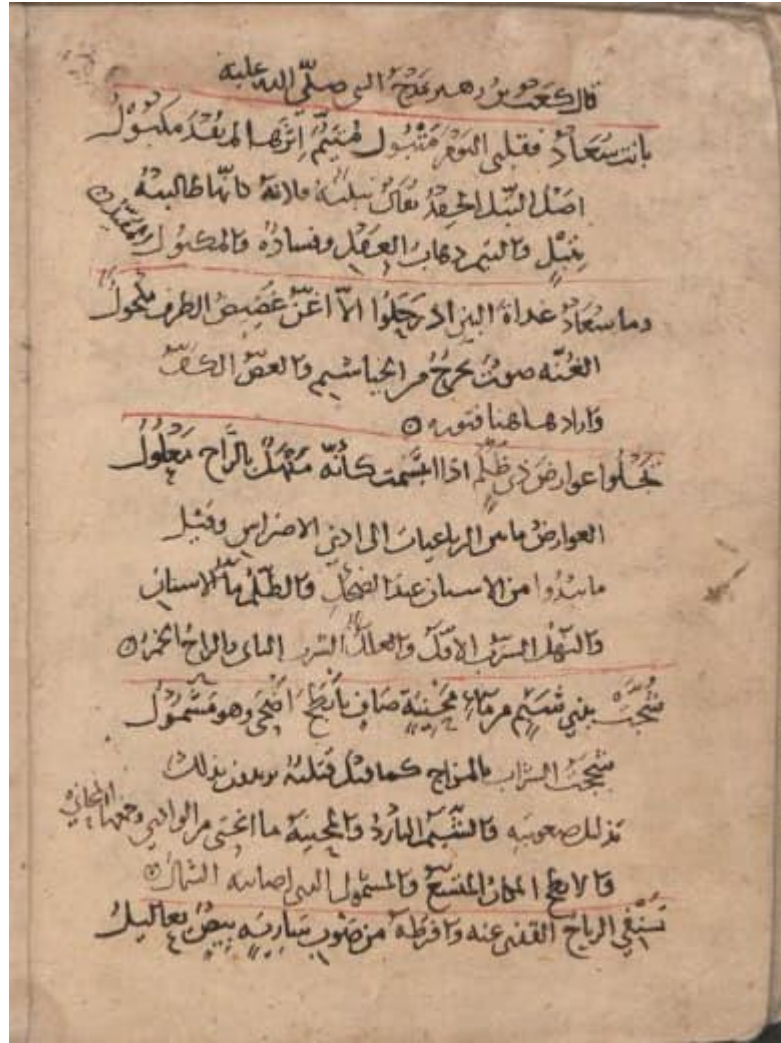 قال كعب بن زهير يمدح النبي صلّى الله عليه
بانت سُعَادُ فقلبي اليَوْمَ مَتْبُول مُتَيَّمٌ اِثْرَهَا لم يُفْدَ مَكبُوْلُ
اصْل التبل الحِقدُ يقال تبلتهُ فلانة كانّها طالبتهُ
بِتَبْلٍ والتيم ذهابُ العقل وفسادُهُ والمكبول المقيّد
وما سُعَادُ غداةَ البين اذ رَحَلُوا الاّ اغنّ غضِيضُ الطرف مكحولُ
الغُنّه صوتٌ يخرجُ من الخياشيم والغضّ
واراد هاهنا فتوره
تجلُوا عوارِضَ ذي ظَلْمٍ اذا ابتسَمت كأنّه مُنْهَلٌ بالرَّاحِ مَعْلُولُ
العوارضُ ما بين الرباعيات الى ادنى الاضراس وقيل
ما يبدُوا من الاسنان عند الضحك والظَّلْمُ ماءُ الاسنان
والنهَلُ الشربُ الاوّل والعلل الشرب الثاني والراحُ الخمر
شُجَّتْ بذي شَبَمٍ من مآءِ مَحْنِيَةٍ صَافٍ بأبْطحَ اَضْحَى وهو مَشْمُوْلُ
شججتُ الشراب بالمزاج كما قيل قتلتهُ يريدون بذلك
تذليل صعوبته والشَّبَم البارِدُ والمحنِيَة ما انحنى من الوادي وجمعها المحاني
والابطح المكانُ المتّسع والمشمُول الذي اصابته الشمالُ
تَنْفي الرياحُ القذى عنه وافرطهُ من صَوْبِ سَارِيةٍ بِيضٌ يعاليلُ